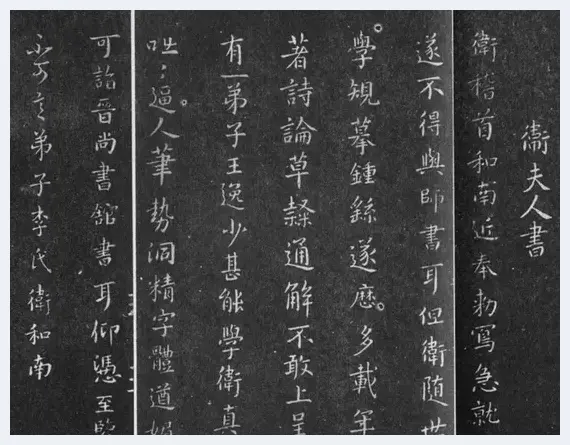 衛夫人書
衛稽首和南近奉勑寫急就
遂不得與師書耳但衛隨世
學規摹鍾繇遂歷多載年
著詩論草隸通解不敢上呈
有一弟子王逸少甚能學衛真
咄咄逼人筆勢洞精字體遒媚
可詣晉尚書館書耳仰憑至
弟子李氏衛和南